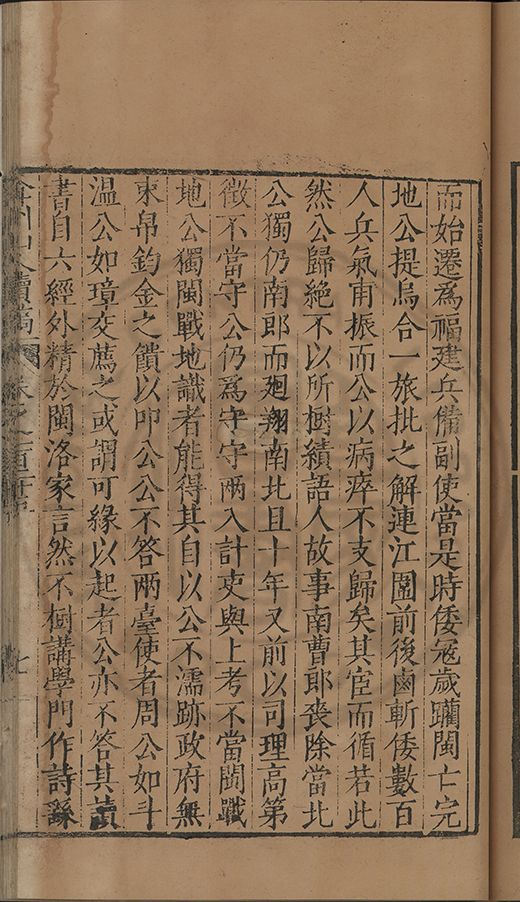 而始遷爲福建兵備副使當是時倭寇歲躪閩亡完
地公提烏合一旅批之解連江圍前後鹵斬倭數百
人兵氣甫振而公以病瘁不支歸矣其宦而循若此
然公歸絶不以所樹績語人故事南曹郎喪除當北
公獨仍南郎而廻翔南北且十年又前以司理高第
徵不當守公仍爲守守兩入計吏與上考不當閩戰
地公獨閩戰地識者能得其自以公不濡跡政府無
束帛鈞金之饋以叩公公不答兩臺使者周公如斗
温公如璋交薦之或謂可緣以起者公亦不答其讀
書自六經外精於閩洛家言然不樹講學門作詩繇
弇州山人續稿 卷之一百
七